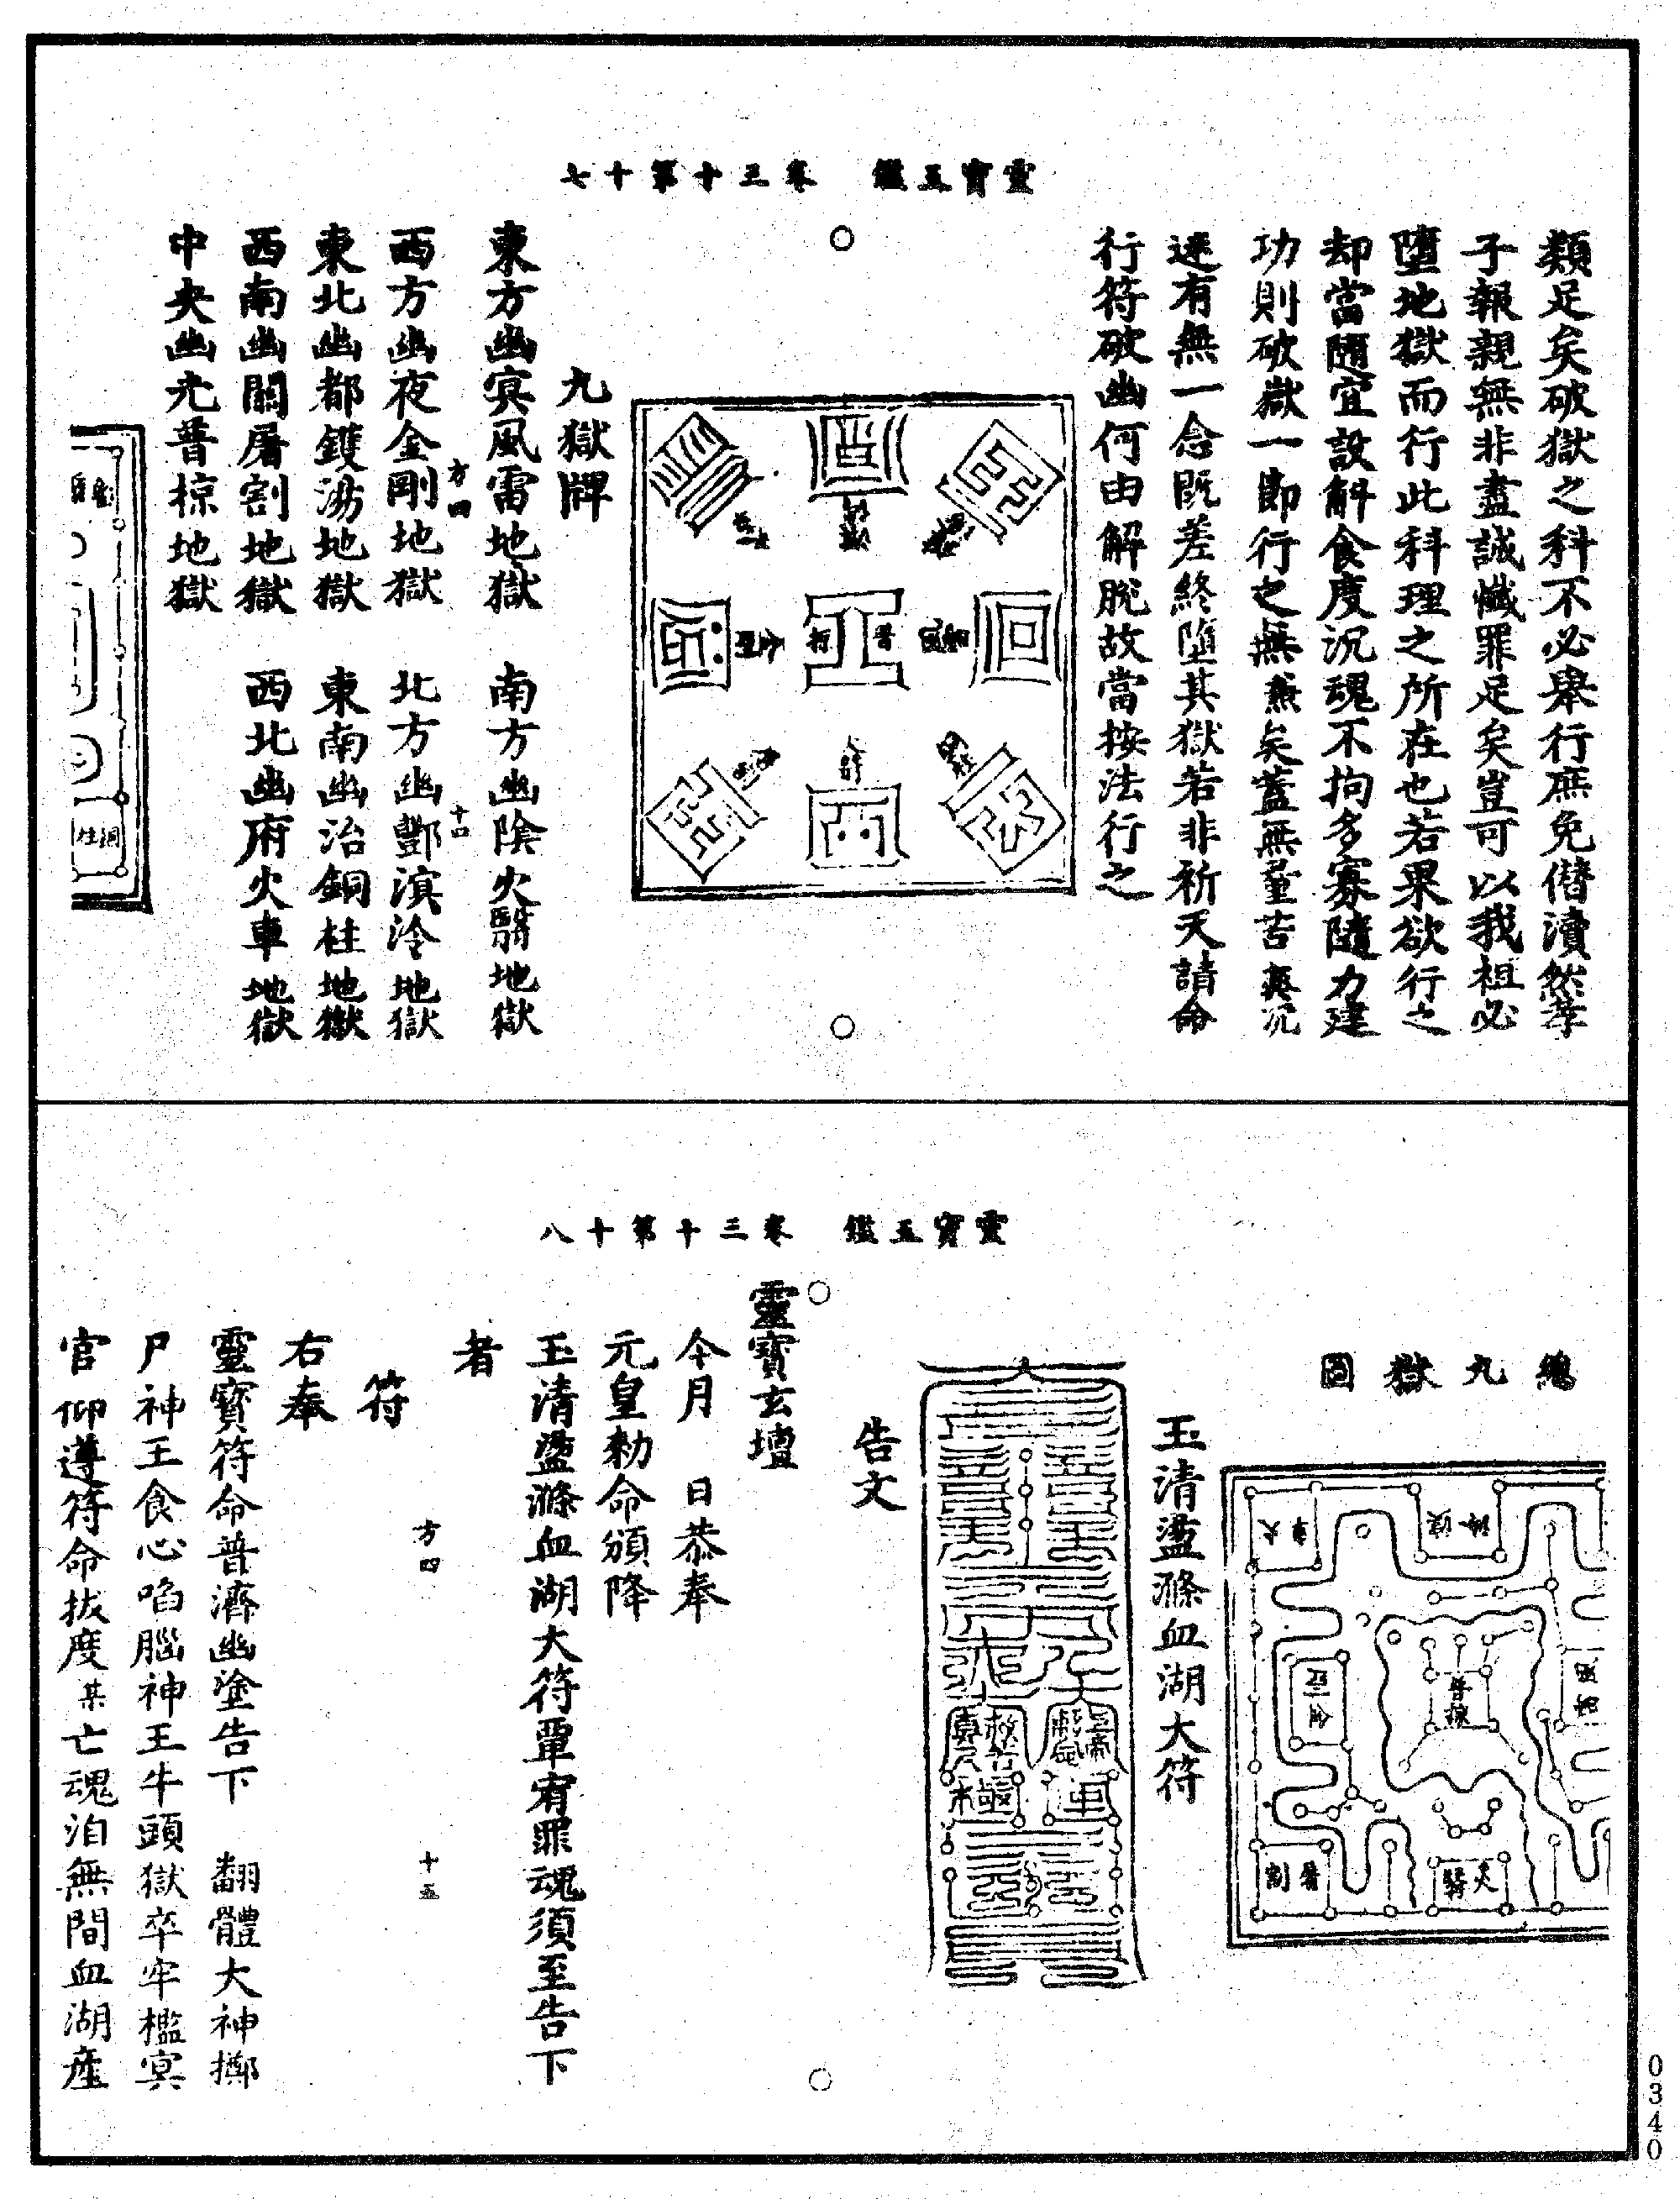 靈寶玉鑑　卷三十第十七
類足矣破獄之科不必舉行庶免僭瀆然孝
子報親無非盡誠懺罪足矣豈可以我祖必
墮地獄而行此科理之所在也若果欲行之
却當隨宜設斛食度沉魂不拘多寡隨力建
功則破獄一節行之無慊矣蓋無量苦爽沉
違有無一念既差終墮其獄若非祈天請命
行符破幽何由解脫故當按法行之
九獄牌
東方幽冥風雷地獄　南方幽陰火翳地獄
方四
十口
西方幽夜金剛地獄　北方幽酆溟泠地獄
東北幽都鑊湯地獄　東南幽治銅柱地獄
西南幽關屠割地獄　西北幽府火車地獄
中央幽光普掠地獄
銅柱
靈寶玉鑑　卷三十第十八
總九獄圖
火車
普掠
屠割
火翳
玉清盪滌血湖大符
告文
靈寶玄壇
今月　日恭奉
元皇勑命頒降
玉清盪滌血湖大符覃宥罪魂須至告下
者
符
方四
十五
右奉
靈寶符命普濟幽塗告下　翻體大神擲
尸神王食心啗腦神王牛頭獄卒牢檻冥
官仰遵符命拔度某亡魂洎無間血湖產
0340